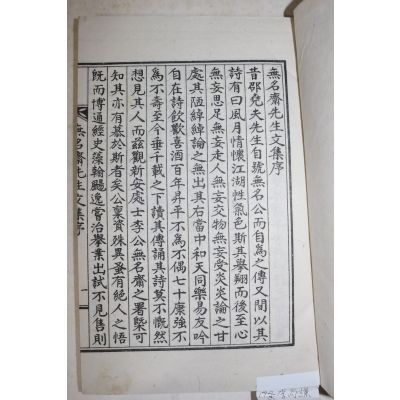 無名齋先生文集序
昔邵堯夫先生自號無名公而自為之傳又間以其
詩有曰風月情懷江湖性氣色斯其擧翔而後至心
無妄思足無妄走人無妄交物無妄受炎炎論之甘
處其陋綽綽論之無出其右當中和天同樂易友吟
自在詩飮歡喜酒百年昇平不為不偶七十康強不
為不壽至今垂千載之下讀其傳誦其詩莫不慨然
想見其人而玆觀新安處士李公無名齋之署槩可
知其亦有慕於斯者矣公稟資殊異蚤有絕人之悟
旣而博通經史藻翰飇逸嘗治擧業出試不見售則
無名齋先生文集序
一